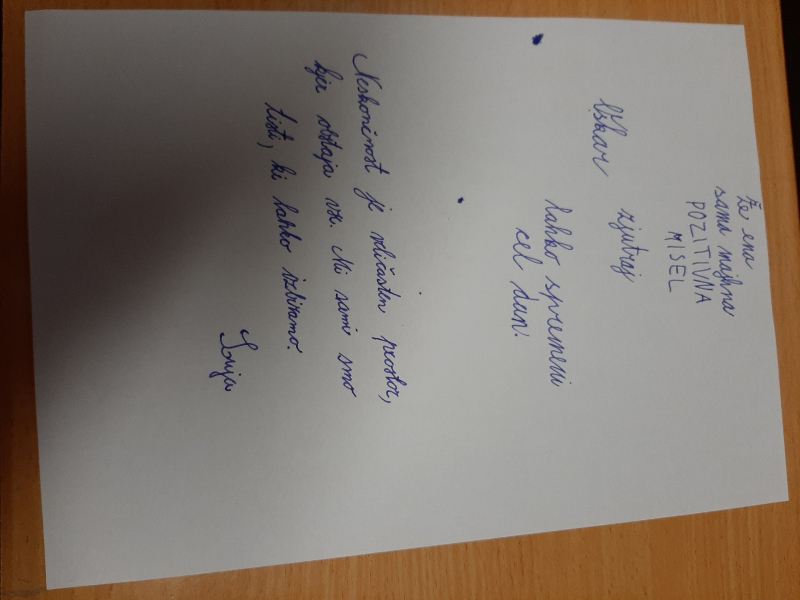 Že ena
sama majhna
POZITIVNA
MISEL
zjutraj
lahko spremeni
cel dan.
Neskončnost je veličasten prostor,
kjer obstaja vse. Mi sami smo
tisti, ki lahko izbiramo.